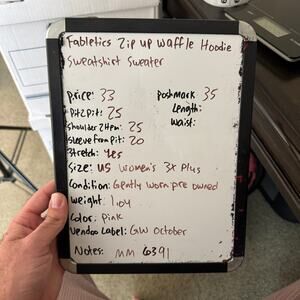 Fabletics Zip up Waffle Hoodie
Sweatshirt Sweater
Price: 33 Poshmark 35
Pit 2 Pit: 25 Length:
Shoulder 2 Hem: 25 Waist:
Sleeve from Pit: 20
Stretch: Yes
Size: US Women's 3X Plus
Condition: Gently worn pre owned
Weight 1.04
Color: Pink
Vendoo Label: GW October
Notes: MM 6391